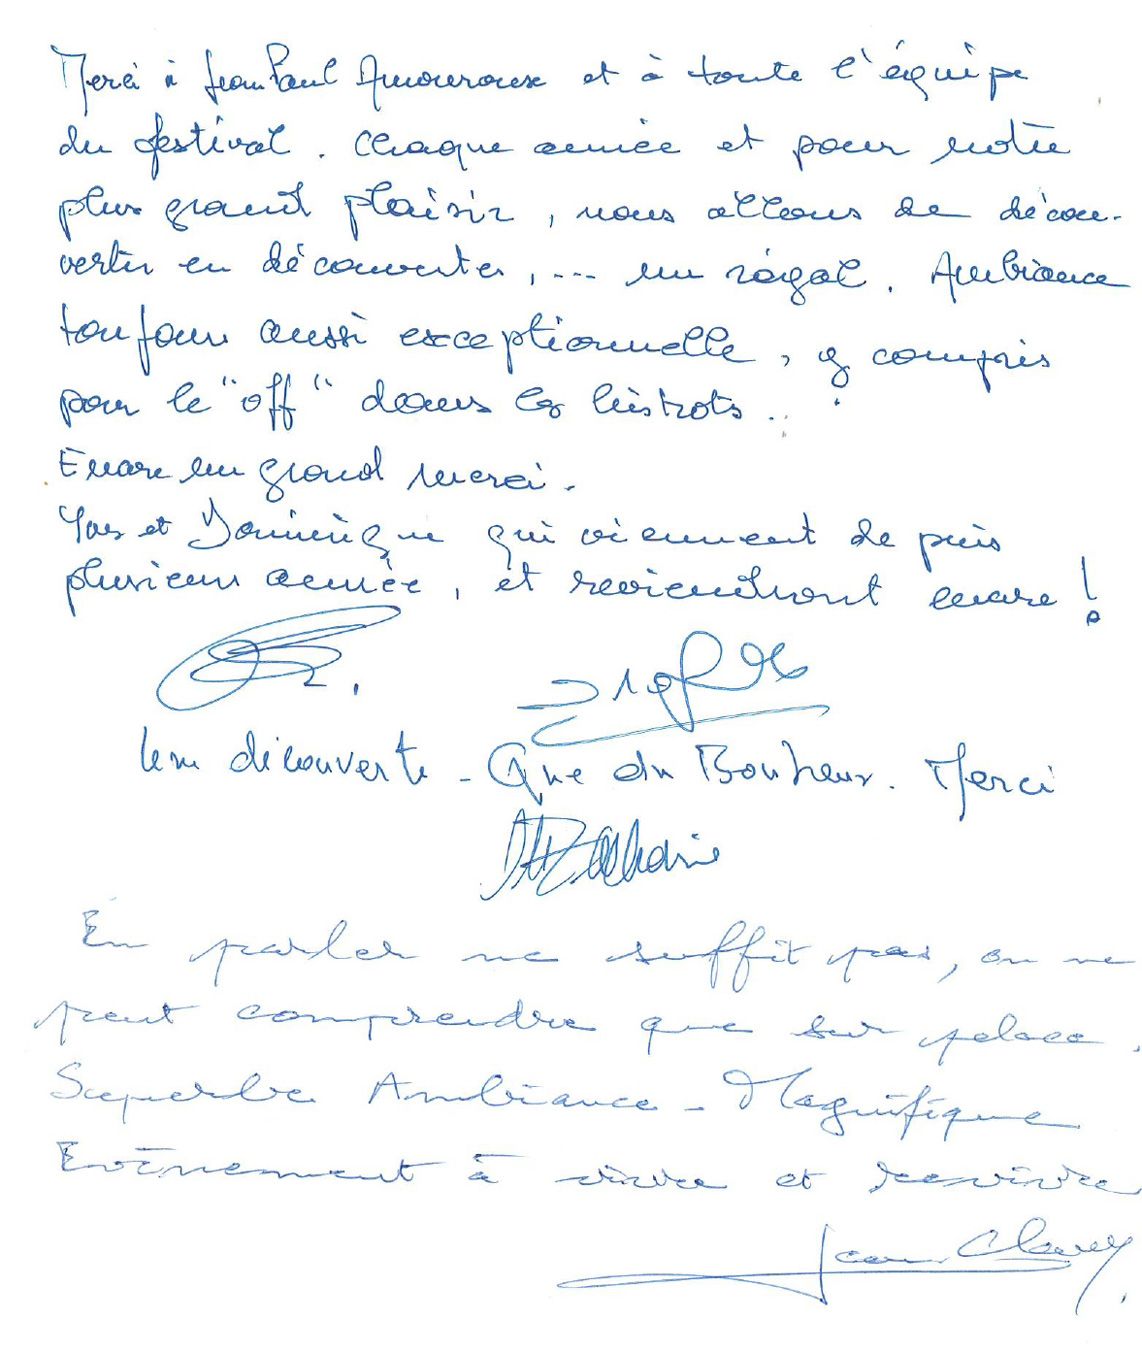 Merci à Jean Paul Amouroux et à toute l'équipe
du festival. Chaque année et pour notre
plus grand plaisir, nous allons de décou-
vertes en découvertes, ... un régal. Ambiance
toujours aussi exceptionnelle, y compris
pour le "off" dans les bistrots..
Encore un grand merci.
Yves et Dominique qui viennent de puis
plusieurs année, et reviendront encore !
Une découverte - Que du Bonheur. Merci
En parler ne suffit pas, on ne
peut comprendre que sur place.
Superbe Ambiance - Magnifique
Evènement à vivre et revivre
Jean